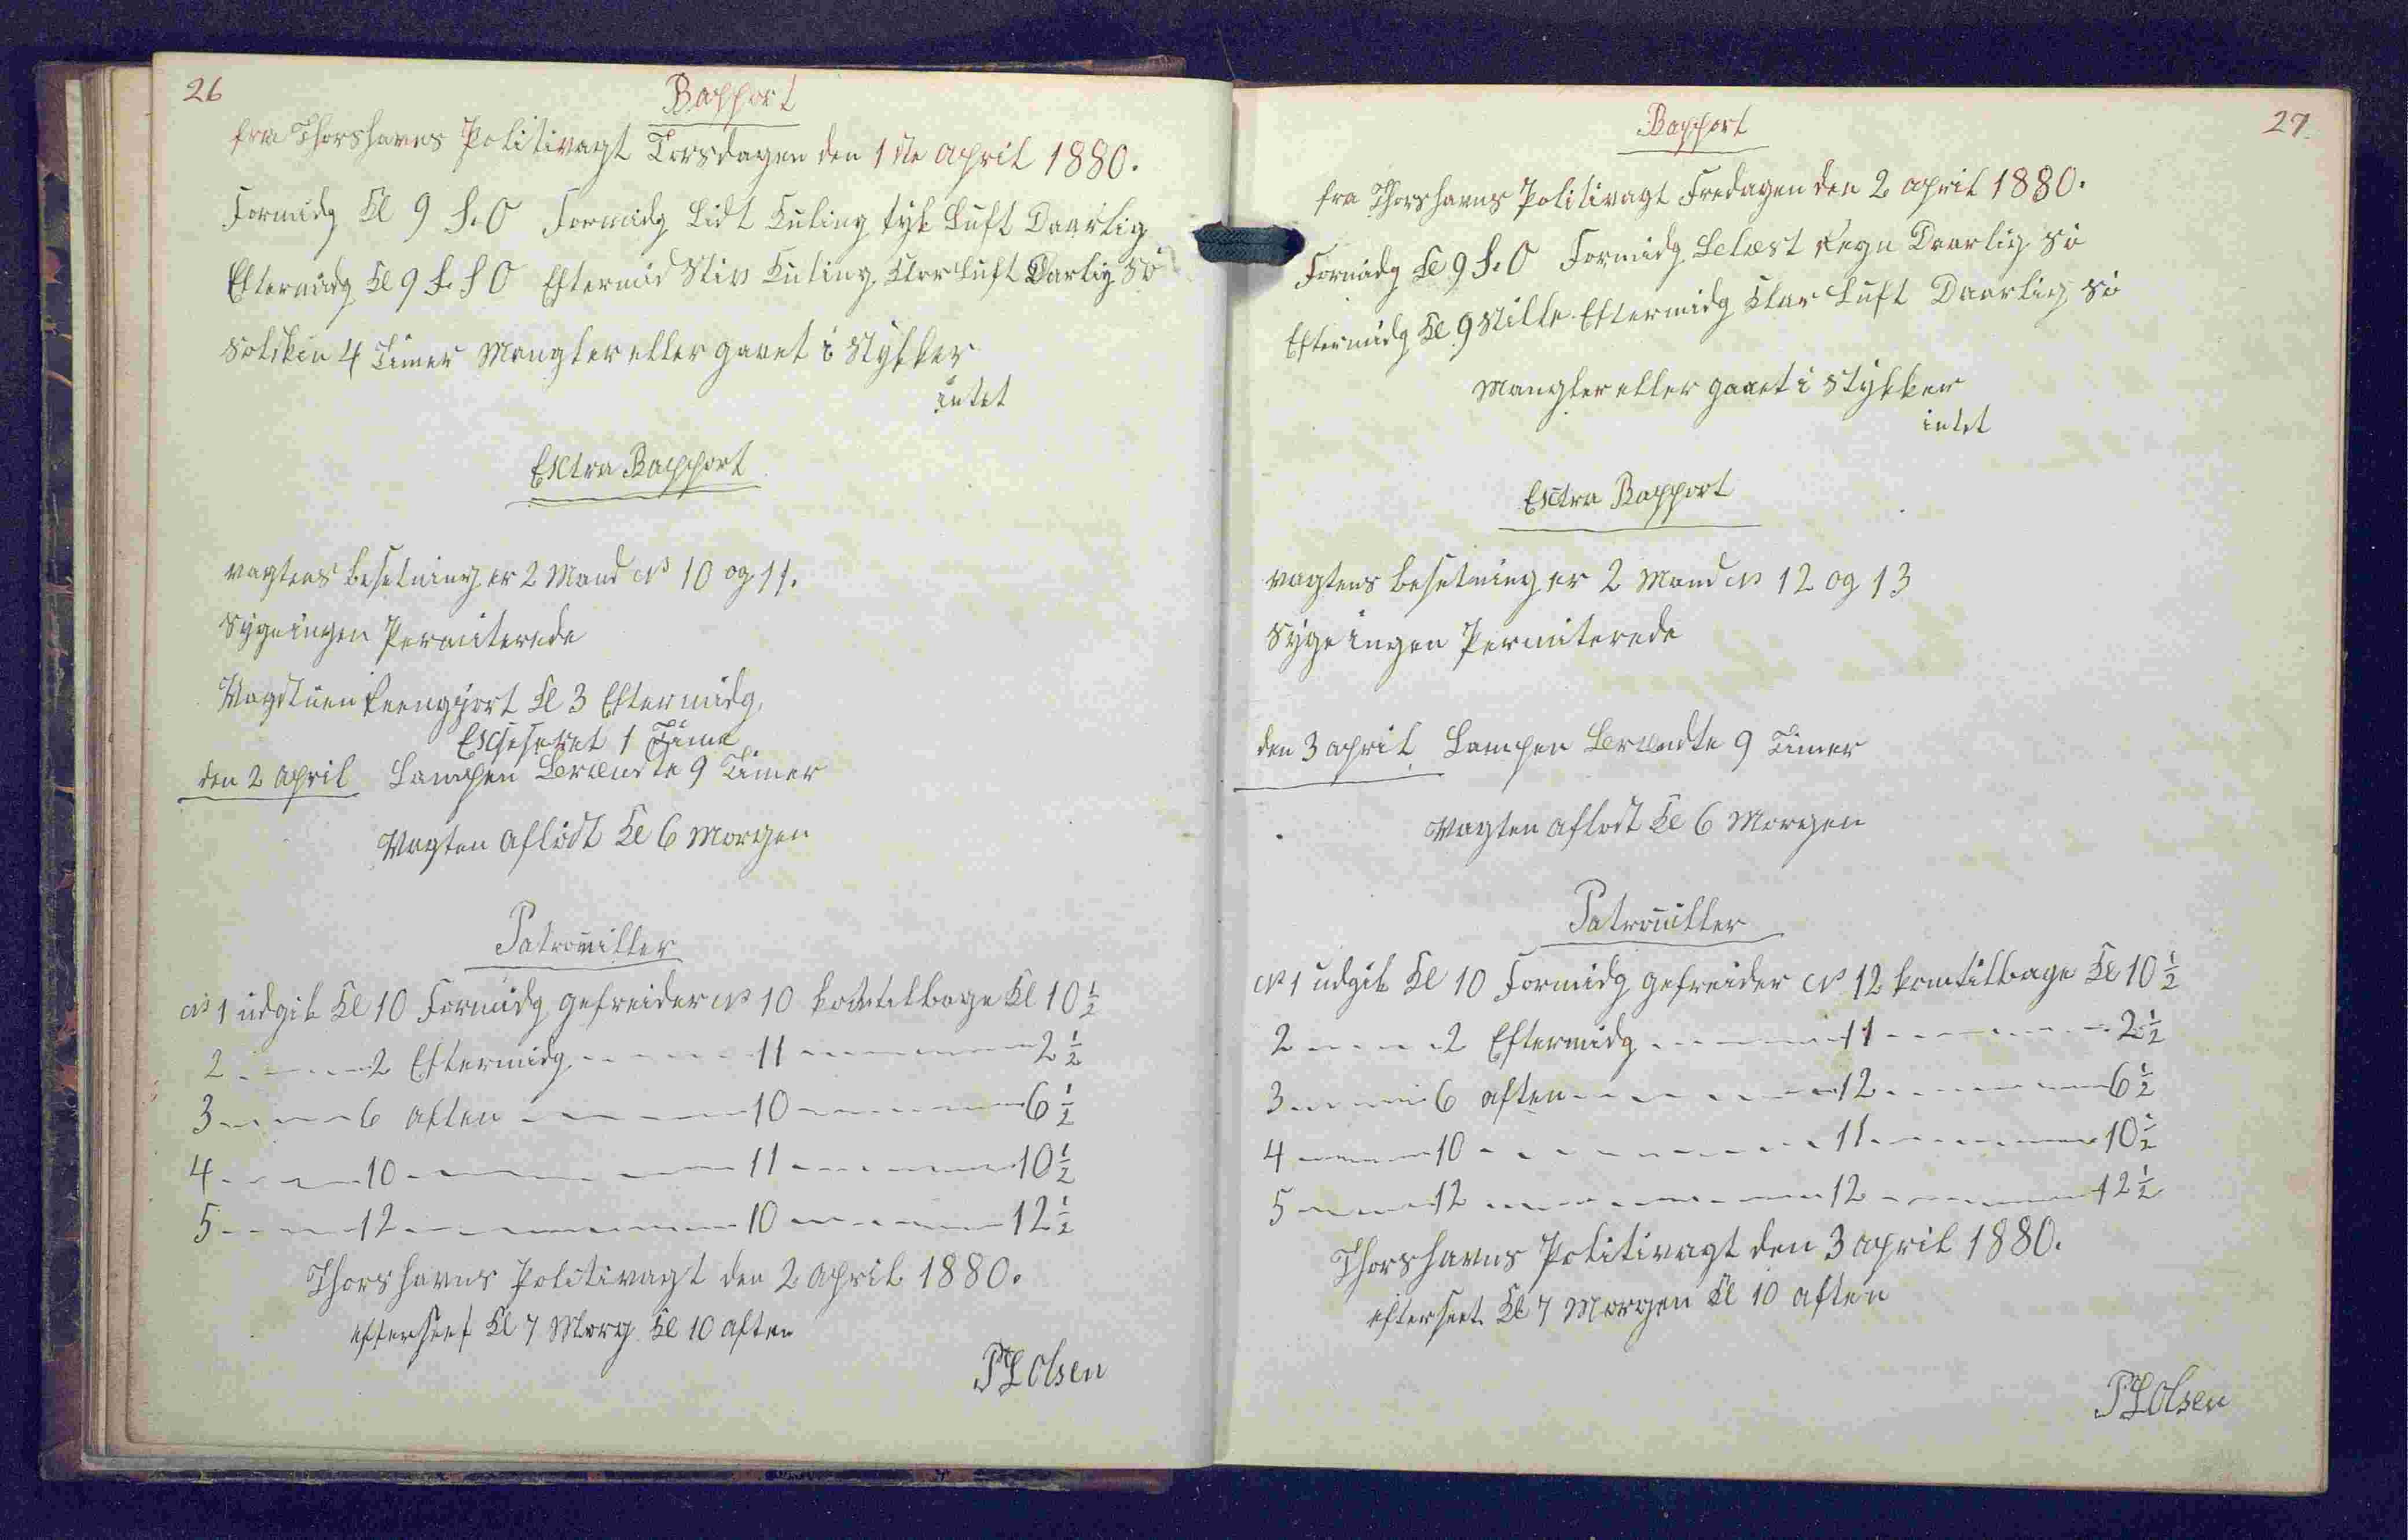 26
Rapport
fra Thorshavns Politivagt Torsdagen den 1ste April 1880.
Formidg Kl 9 S.O Formidg Lidt Kuling tyk Luft Daarlig
Eftermidg Kl 9 S.S.O Eftermid Stiv Kuling Klar Luft Darlig Sö
Solskin 4 Timer Mangler eller gaaet i Stykker
intet
Extra Rapport
vagtens besetning er 2 Mand No 10 og 11.
Syge ingen Permiterede
Vagstuen Reengjort Kl 3 Eftermidg.
Exseseret 1 Time
den 2 April Lampen Brændte 9 Timer
Vagten Aflöst Kl 6 Morgen
Patrouiller
No 1 udgik Kl 10 Formidg gefreider No 10 kom tilbage Kl 10 1/2
2 - - - - 2 Eftermidg - - - - 11 - - - - 2 1/2
3 - - - - 6 aften - - - - 10 - - - - 6 1/2
4 - - - - 10 - - - - 11 - - - - 10 1/2
5 - - - - 12 - - - - 10 - - - - 12 1/2
Thorshavns Politivagt den 2 April 1880.
efterseet Kl 7 Morg Kl 10 Aften
Olsen
27
Rapport
fra Thorshavns Politivagt Fredagen den 2 April 1880.
Formidg Kl 9 S.O Formidg Blæst Regn Daarlig Sö
Eftermidg Kl 9 Stille Eftermidg Klar Luft Daarlig Sö
Mangler eller gaaet i Stykker
intet
Extra Rapport
vagtens besetning er 2 Mand No 12 og 13
Syge ingen Permiterede
den 3 April Lampen Brændte 9 Timer
Vagten Aflöst Kl 6 Morgen
Patrouiller
No 1 udgik Kl 10 Formidg gefreider No 12 kom tilbage Kl 10 1/2
2 - - - - 2 Eftermidg - - - - 11 - - - - 2 1/2
3 - - - - 6 aften - - - - 12 - - - - 6 1/2
4 - - - - 10 - - - - 11 - - - - 10 1/2
5 - - - - 12 - - - - 12 - - - - 12 1/2
Thorshavns Politivagt den 3 April 1880.
efterseet Kl 7 Morgen Kl 10 Aften
Olsen